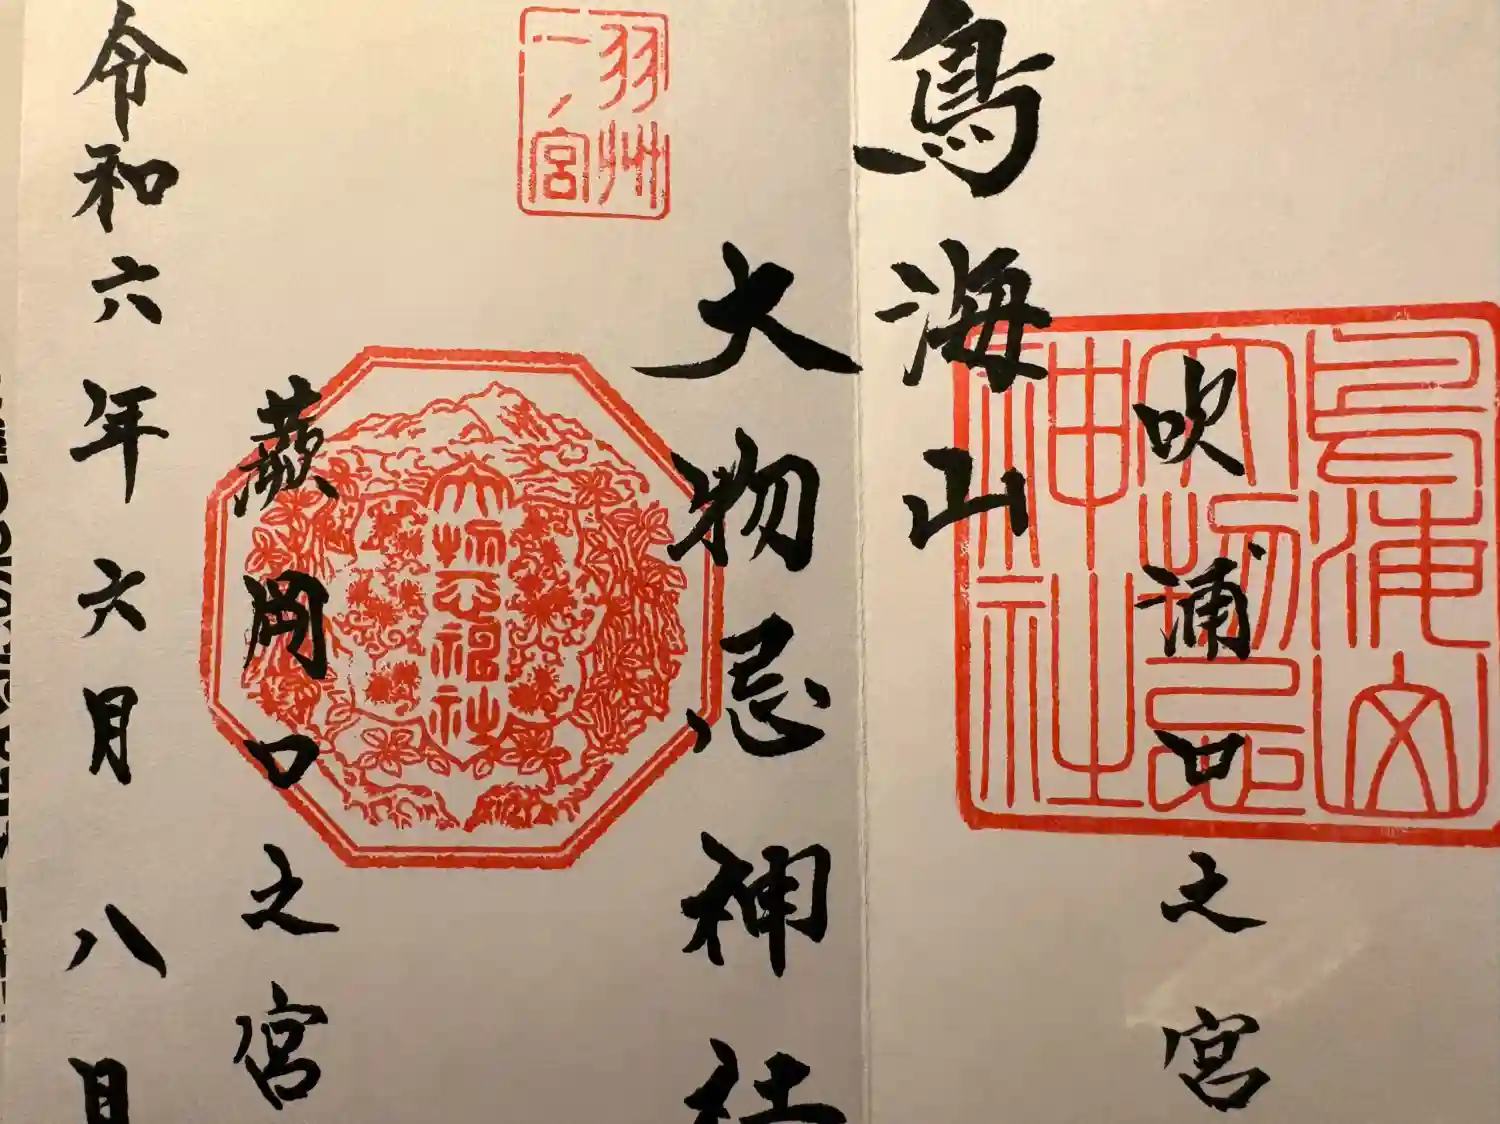 鳥海山
吹浦口之宮
鳥海山
大物忌
神社
羽州
一ノ宮
大物忌神社
大物忌神社
蕨岡口之宮
令和六年六月八日